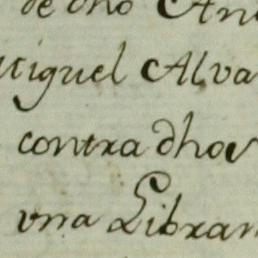 de dho An
Miguel Alva
contra dhos
vna Libran